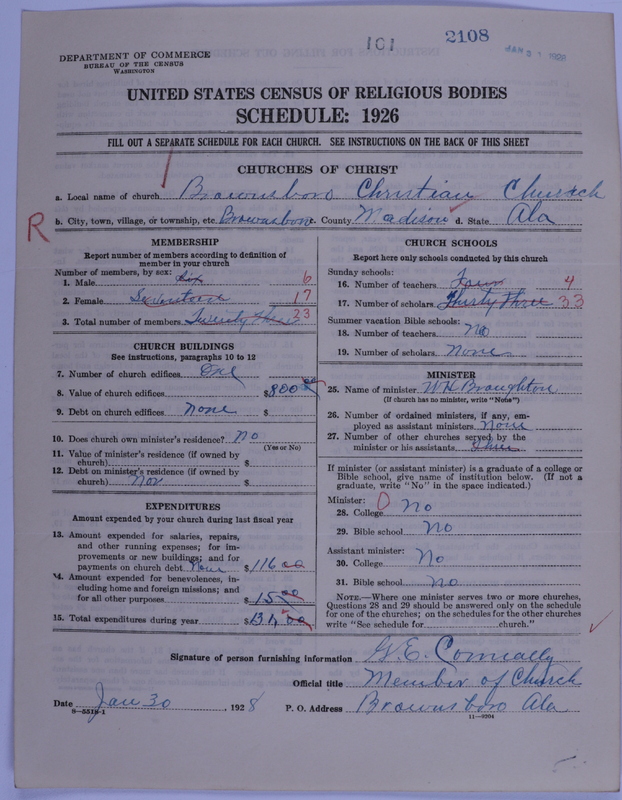 161 2108
DEPARTMENT OF COMMERCE
BUREAU OF THE CENSUS
WASHINGTON
UNITED STATES CENSUS OF RELIGIOUS BODIES
SCHEDULE: 1926
FILL OUT A SEPARATE SCHEDULE FOR EACH CHURCH. SEE INSTRUCTIONS ON THE BACK OF THIS SHEET
CHURCHES OF CHRIST
a. Local name of church Brownsboro Christian Church
R
b. City, town, village, or township, etc. Brownsboro c. County Madison d. State Ala
MEMBERSHIP
Report number of members according to definition of
member in your church
Number of members, by sex:
1. Male Six 6
2. Female Seventeen 17
3. Total number of members Twenty Three 23
CHURCH BUILDINGS
See instructions, paragraphs 10 to 12
7. Number of church edifices One
8. Value of church edifices $800 00
9. Debt on church edifices None $
10. Does church own minister's residence? No
(Yes or No)
11. Value of minister's residence (if owned by
church) $
12. Debt on minister's residence (if owned by
church) $
EXPENDITURES
Amount expended by your church during last fiscal year
13. Amount expended for salaries, repairs,
and other running expenses; for im-
provements or new buildings; and for
payments on church debt None $116 00
14. Amount expended for benevolences, in-
cluding home and foreign missions; and
for all other purposes $15 00
15. Total expenditures during year $
CHURCH SCHOOLS
Report here only schools conducted by this church
Sunday schools:
16. Number of teachers Four 4
17. Number of scholars Thirty Three 33
Summer vacation Bible schools:
18. Number of teachers No
19. Number of scholars None
MINISTER
25. Name of minister W H Broughton
(If church has no minister, write "None")
26. Number of ordained ministers, if any, em-
ployed as assistant ministers None
27. Number of other churches served by the
minister or his assistants Three
If minister (or assistant minister) is a graduate of a college or
Bible school, give name of institution below. (If not a
graduate, write "No" in the space indicated.)
Minister:
28. College No
29. Bible school No
Assistant minister:
30. College No
31. Bible school No
NOTE.—Where one minister serves two or more churches,
Questions 28 and 29 should be answered only on the schedule
for one of the churches; on the schedules for the other churches
write "See schedule for church."
Signature of person furnishing information G. E. Connally
Official title Member of Church
Date Jan 30, 1928 P. O. Address Brownsboro Ala
8—5518-1 11—9904